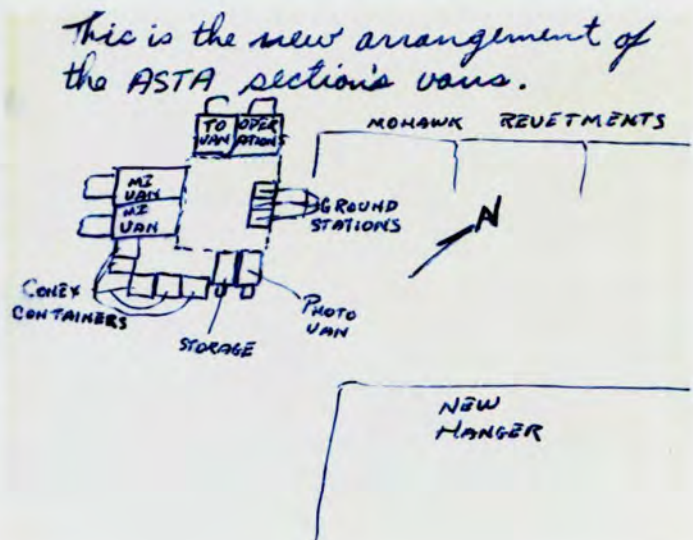 This is the new arrangement of
the ASTA section's vans.
TO VAN
OPER ATIONS
MOHAWK REVETMENTS
MI VAN
MI VAN
GROUND
STATIONS
N
CONEX
CONTAINERS
STORAGE
PHOTO
VAN
NEW
HANGER